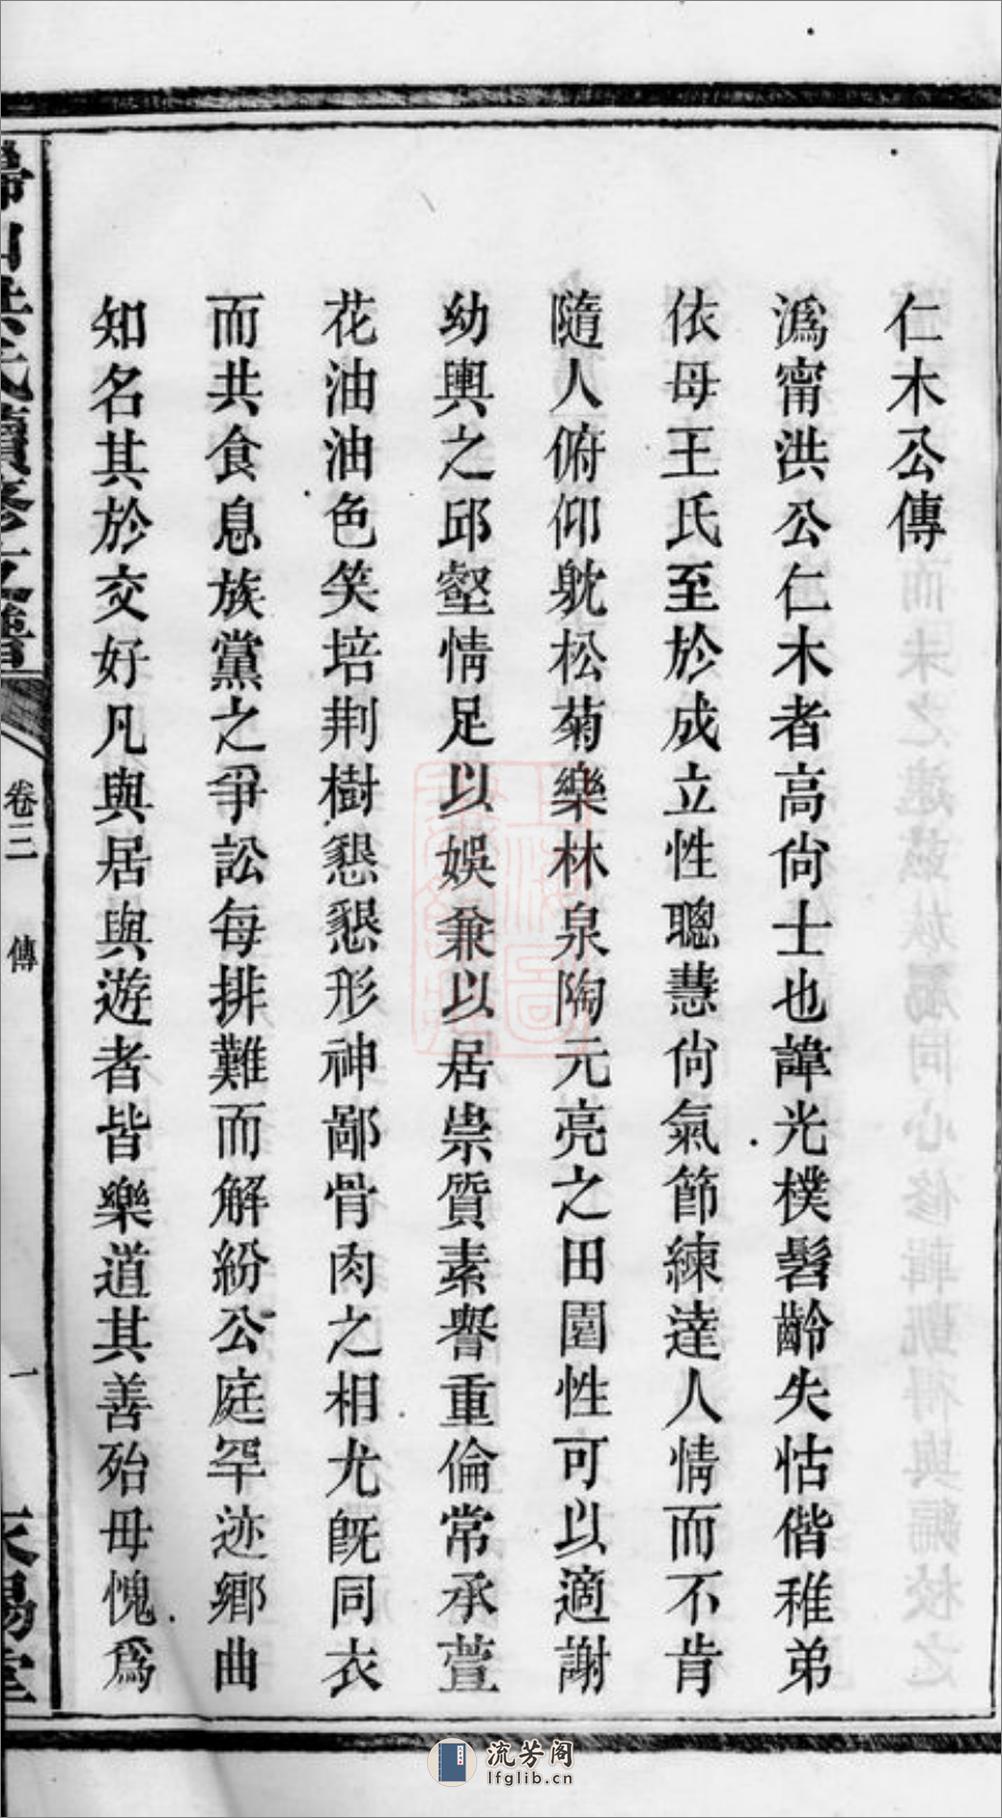 仁木公傳
溈甯洪公仁木者高尙士也諱光樸髫齡失怙偕稚弟
依母王氏至於成立性聰慧尙氣節練達人情而不肯
隨人俯仰躭松菊樂林泉陶元亮之田園性可以適謝
幼輿之邱壑情足以娛兼以居祟質素譽重倫常承萱
花油油色笑培荆樹懇懇形神鄙骨肉之相尤旣同衣
而共食息族黨之爭訟每排難而解紛公庭罕迹鄉曲
知名其於交好凡與居與遊者皆樂道其善殆毋愧爲
卷三
傳
一
流芳阁
lfglib.cn